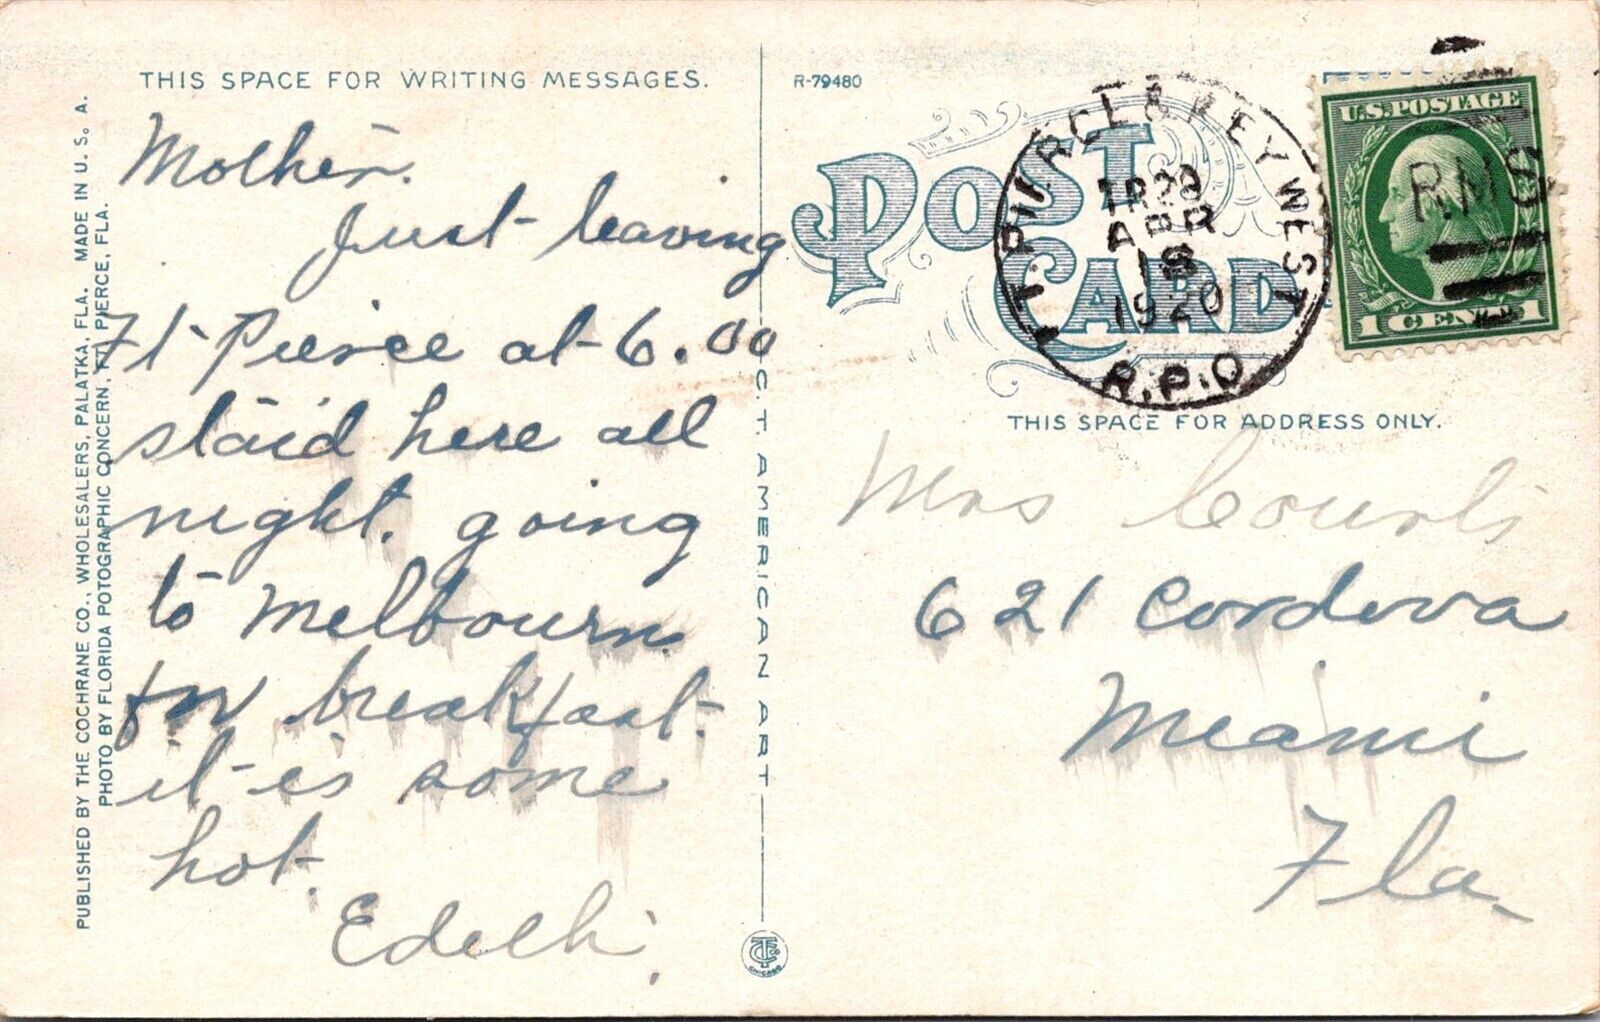 THIS SPACE FOR WRITING MESSAGES.
Mother.
Just leaving
Ft Pierce at 6.00
staid here all
night. going
to Melbourn
for breakfast.
it is some
hot.
Edith.
PUBLISHED BY THE COCHRANE CO., WHOLESALERS, PALATKA, FLA. MADE IN U. S. A.
PHOTO BY FLORIDA POTOGRAPHIC CONCERN, FT. PIERCE, FLA.
C.T. AMERICAN ART
CHICAGO
R-79480
POST CARD
& KEY WEST
TR 29
APR
18
1920
R.P.O.
U.S. POSTAGE
R.M.S
1 CENT 1
THIS SPACE FOR ADDRESS ONLY.
Mrs
621 Cordova
Miami
Fla